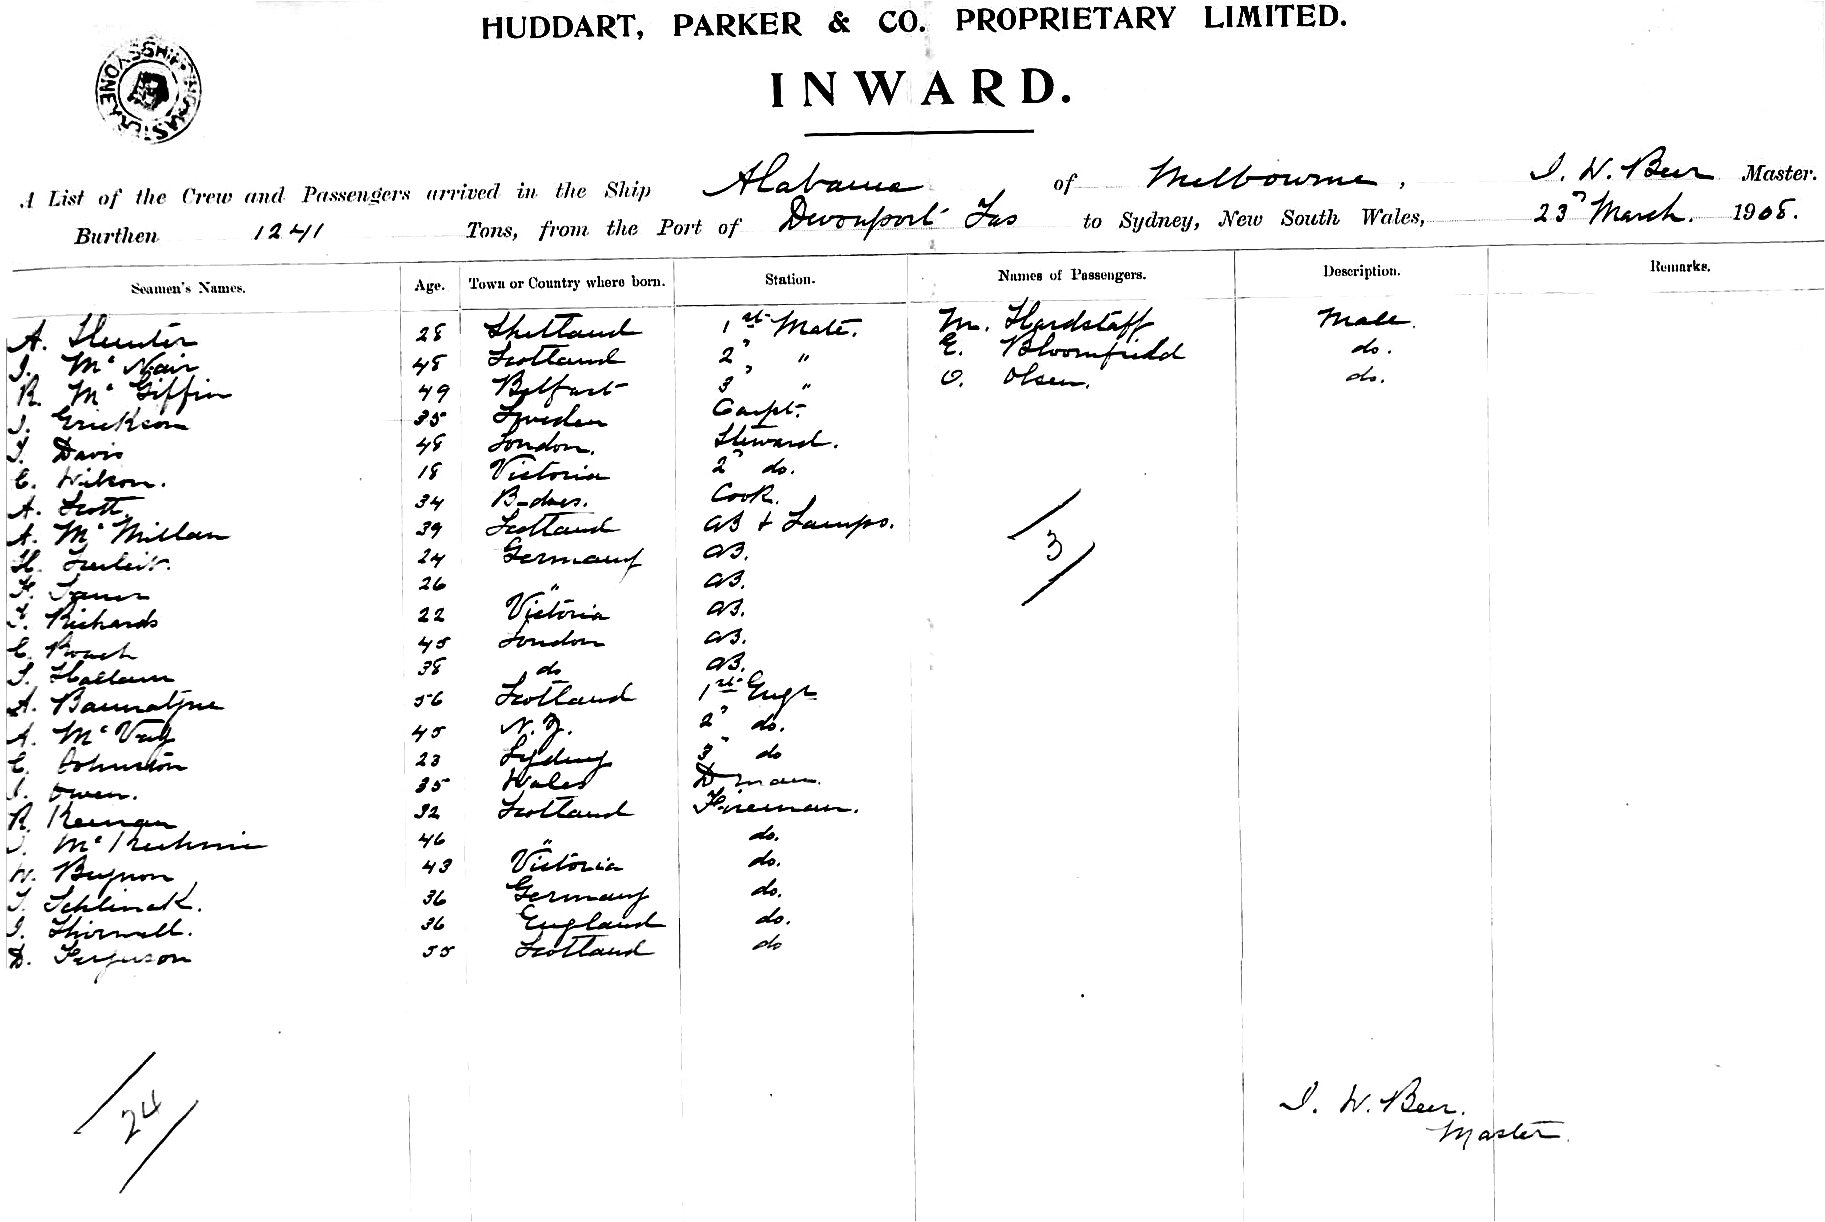 HUDDART, PARKER & CO. PROPRIETARY LIMITED.
INWARD.
A List of the Crew and Passengers arrived in the Ship Alabama of Melbourne, J. W. Beer Master.
Burthen 1241 Tons, from the Port of Devonport Tas to Sydney, New South Wales, 23" March. 1908.
Seamen's Names. Age. Town or Country where born. Station. Names of Passengers. Description. Remarks.
A. Hunter 28 Shetland 1st Mate. M. Hardstaff Male.
J. McNair 48 Scotland 2" " E. Bloomfield do.
R. McGiffin 49 Belfast 3" " O. Olsen. do.
J. Erickson 35 Sweden Carpt.
J. Davis 48 London. Steward.
C. Wilson. 18 Victoria 2" do.
A. Scott 34 B-does. Cook.
A. McMillan 39 Scotland AB & Lamps.
H. 24 Germany AB.
26 " AB.
Richards 22 Victoria AB.
C. Roach 45 London AB.
Hallam 38 do AB.
A. Bannatyne 56 Scotland 1st Engr
A. McVey 45 N.Z. 2" do.
C. Johnston 23 Sydney 3" do
J. Owen. 35 Wales Dman.
R. Keenan 32 Scotland Fireman.
J. McKechnie 46 " do.
W. Bignon 43 Victoria do.
Schlinck. 36 Germany do.
J. Thirnell. 36 England do.
D. Ferguson 55 Scotland do
3
24
J. W. Beer.
Master.